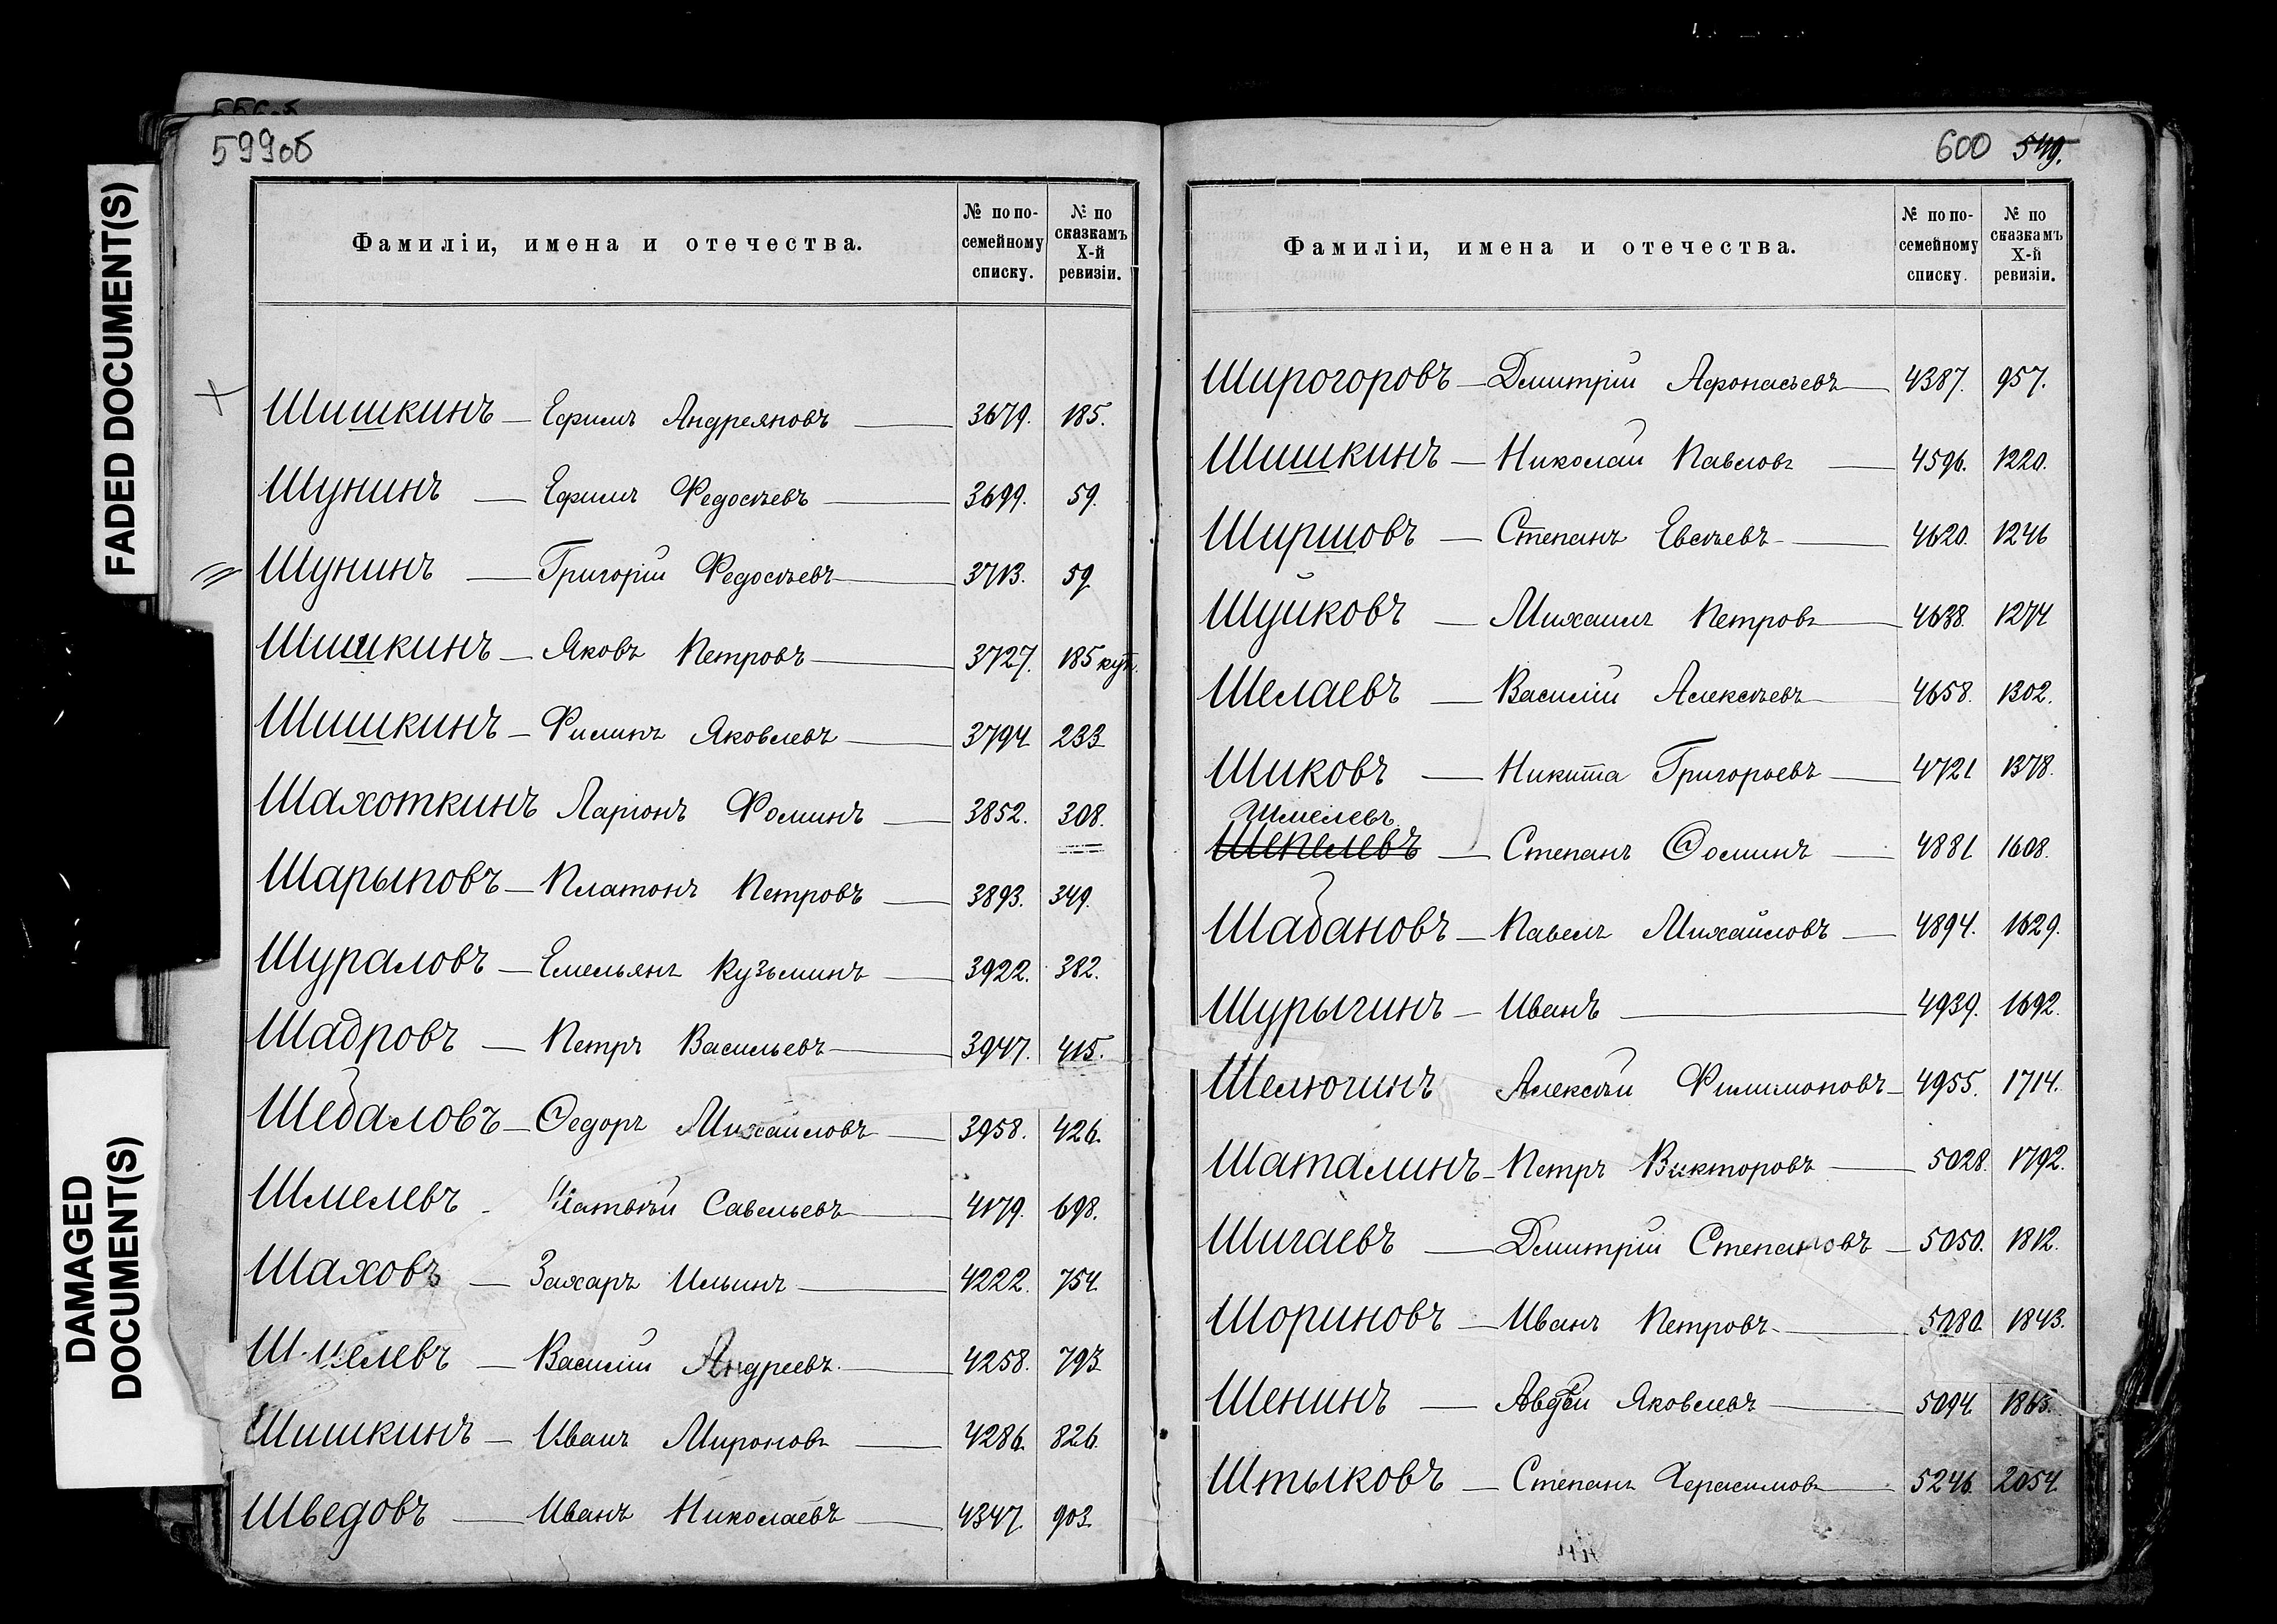 599об
Фамиліи, имена и отечества. № по по-семейному списку. № по сказкамъ X-й ревизіи.
Шишкинъ — Ефимъ Андреяновъ — 3679. 185.
Шунинъ — Ефимъ Федосѣевъ — 3699. 59.
Шунинъ — Григорій Федосѣевъ — 3713. 59
Шишкинъ — Яковъ Петровъ — 3727. 185 куп.
Шишкинъ — Филипъ Яковлевъ — 3794 233
Шахоткинъ Ларіонъ Фоминъ — 3852. 308.
Шарыповъ — Платонъ Петровъ — 3893. 349.
Шураловъ — Емельянъ Кузьминъ — 3922. 382.
Шадровъ — Петръ Васильевъ — 3947. 415.
Шебаловъ — Ѳедоръ Михайловъ — 3958. 426.
Шмелевъ - Матвѣй Савельевъ — 4179. 698.
Шаховъ — Захаръ Ильинъ — 4222. 754
Шмелевъ — Василій Андреевъ — 4258. 793
Шишкинъ — Иванъ Мироновъ — 4286. 826.
Шведовъ — Иванъ Николаевъ — 4347 903
600 549.
Фамиліи, имена и отечества. № по по-семейному списку. № по сказкамъ X-й ревизіи.
Широгоровъ — Дмитрій Афонасьевъ — 4387. 957.
Шишкинъ — Николай Павловъ — 4596. 1220.
Ширшовъ — Степанъ Евсѣевъ — 4620. 1246
Шуйковъ — Михаилъ Петровъ — 4638. 1274
Шелаевъ — Василій Алексѣевъ — 4658. 1302.
Шиковъ — Никита Григорьевъ — 4721 1378.
Шмелевъ
Шепелевъ — Степанъ Ѳоминъ — 4881 1608.
Шабановъ — Павелъ Михайловъ — 4894. 1629.
Шурыгинъ — Иванъ — 4939. 1692.
Шелюгинъ Алексѣй Филимоновъ — 4955. 1714.
Шаталинъ — Петръ Викторовъ — 5028. 1792.
Шигаевъ — Дмитрій Степановъ — 5050. 1812.
Шориновъ — Иванъ Петровъ — 5080. 1843.
Шенинъ — Авдѣй Яковлевъ — 5094. 1865.
Штыковъ — Степанъ Герасимовъ — 5246. 2054.
FADED DOCUMENT(S)
DAMAGED
DOCUMENT(S)